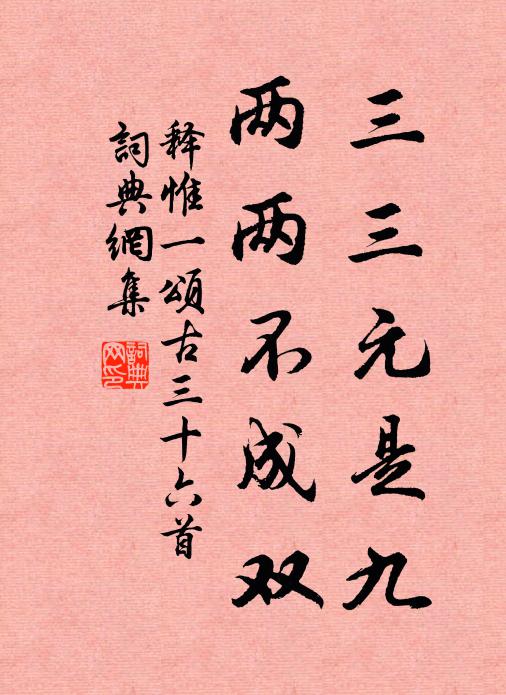 三三元是九
两两不成双
释惟一颂古三十六首
詞典網集
詞典网印